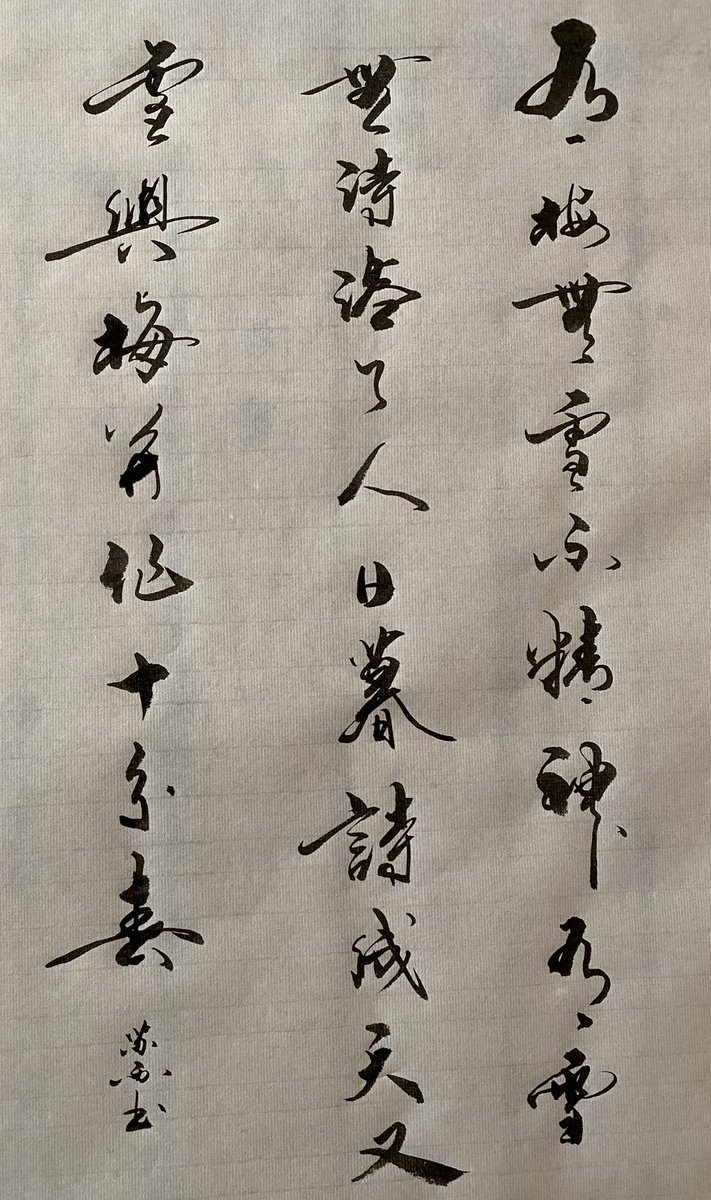 有梅無雪不精神有雪
無詩俗了人日暮詩成天又
雪與梅並作十分春
书